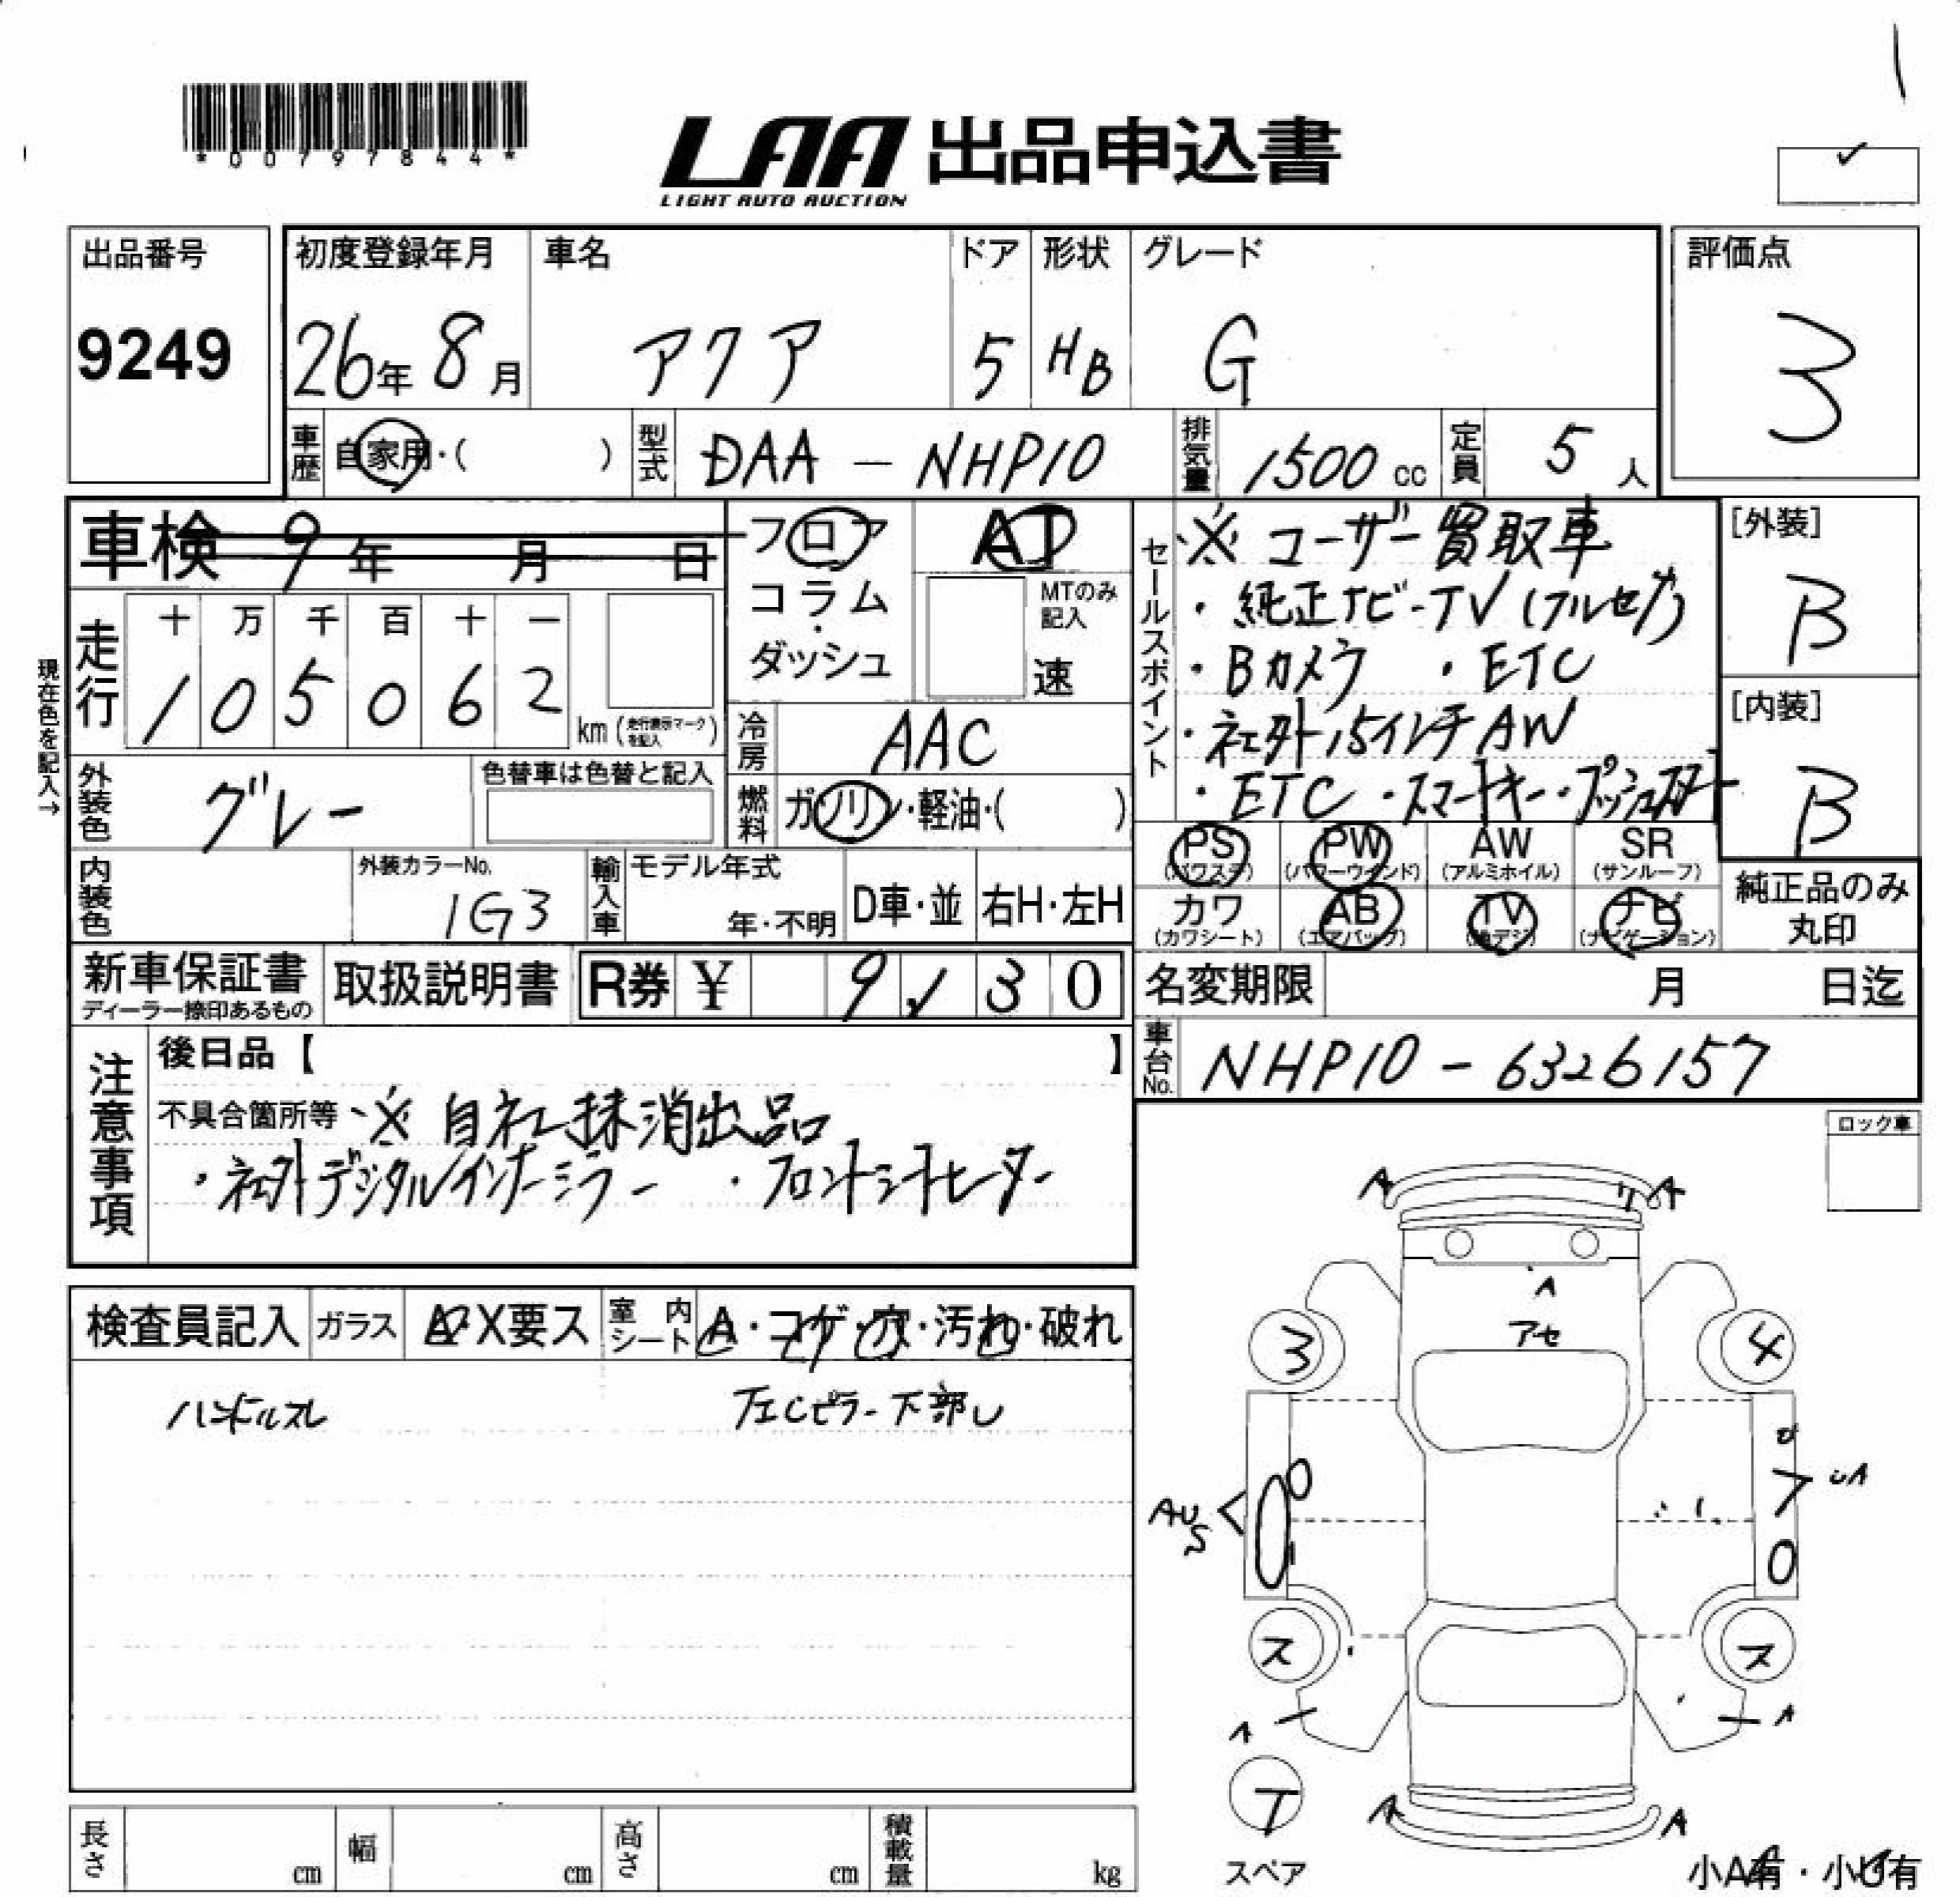 *00797844*
LAA 出品申込書
LIGHT AUTO AUCTION
出品番号
9249
初度登録年月
26年 8月
車名
アクア
ドア
5
形状
HB
グレード
G
評価点
3
車歴 自家用・( )
型式 DAA-NHP10
排気量 1500 cc
定員 5人
車検 9年 月 日
フロア
コラム
・
ダッシュ
AT
MTのみ
記入
速
セールスポイント
※ユーザー買取車
・純正ナビ-TV(フルセグ)
・Bカメラ ・ETC
・社外15インチAW
・ETC・スマートキー・プッシュスター
[外装]
B
[内装]
B
現在色を記入→
走行
十 万 千 百 十 一
1 0 5 0 6 2
km(走行表示マークを記入)
冷房 AAC
外装色 グレー
色替車は色替と記入
燃料 ガソリン・軽油・( )
PS
(パワステ)
PW
(パワーウインド)
AW
(アルミホイル)
SR
(サンルーフ)
カワ
(カワシート)
AB
(エアバッグ)
TV
(地デジ)
ナビ
(ナビゲーション)
純正品のみ
丸印
内装色
外装カラーNo.
1G3
輸入車
モデル年式
年・不明
D車・並
右H・左H
新車保証書
ディーラー捺印あるもの
取扱説明書
R券 ¥ 9,130
名変期限 月 日迄
車台No. NHP10-6326157
注意事項
後日品【 】
不具合箇所等 ※自社抹消出品
・社外デジタルインナーミラー ・フロントシートヒーター
ロック車
検査員記入
ガラス
A・X要ス
室内シート
A・コゲ・穴・汚れ・破れ
ハンドルスレ
左Cピラー下部U
A
A
A
アセ
3
4
UA
AUS
ス
ス
A
A
T
A
A
スペア
小A有・小U有
長さ cm
幅 cm
高さ cm
積載量 kg